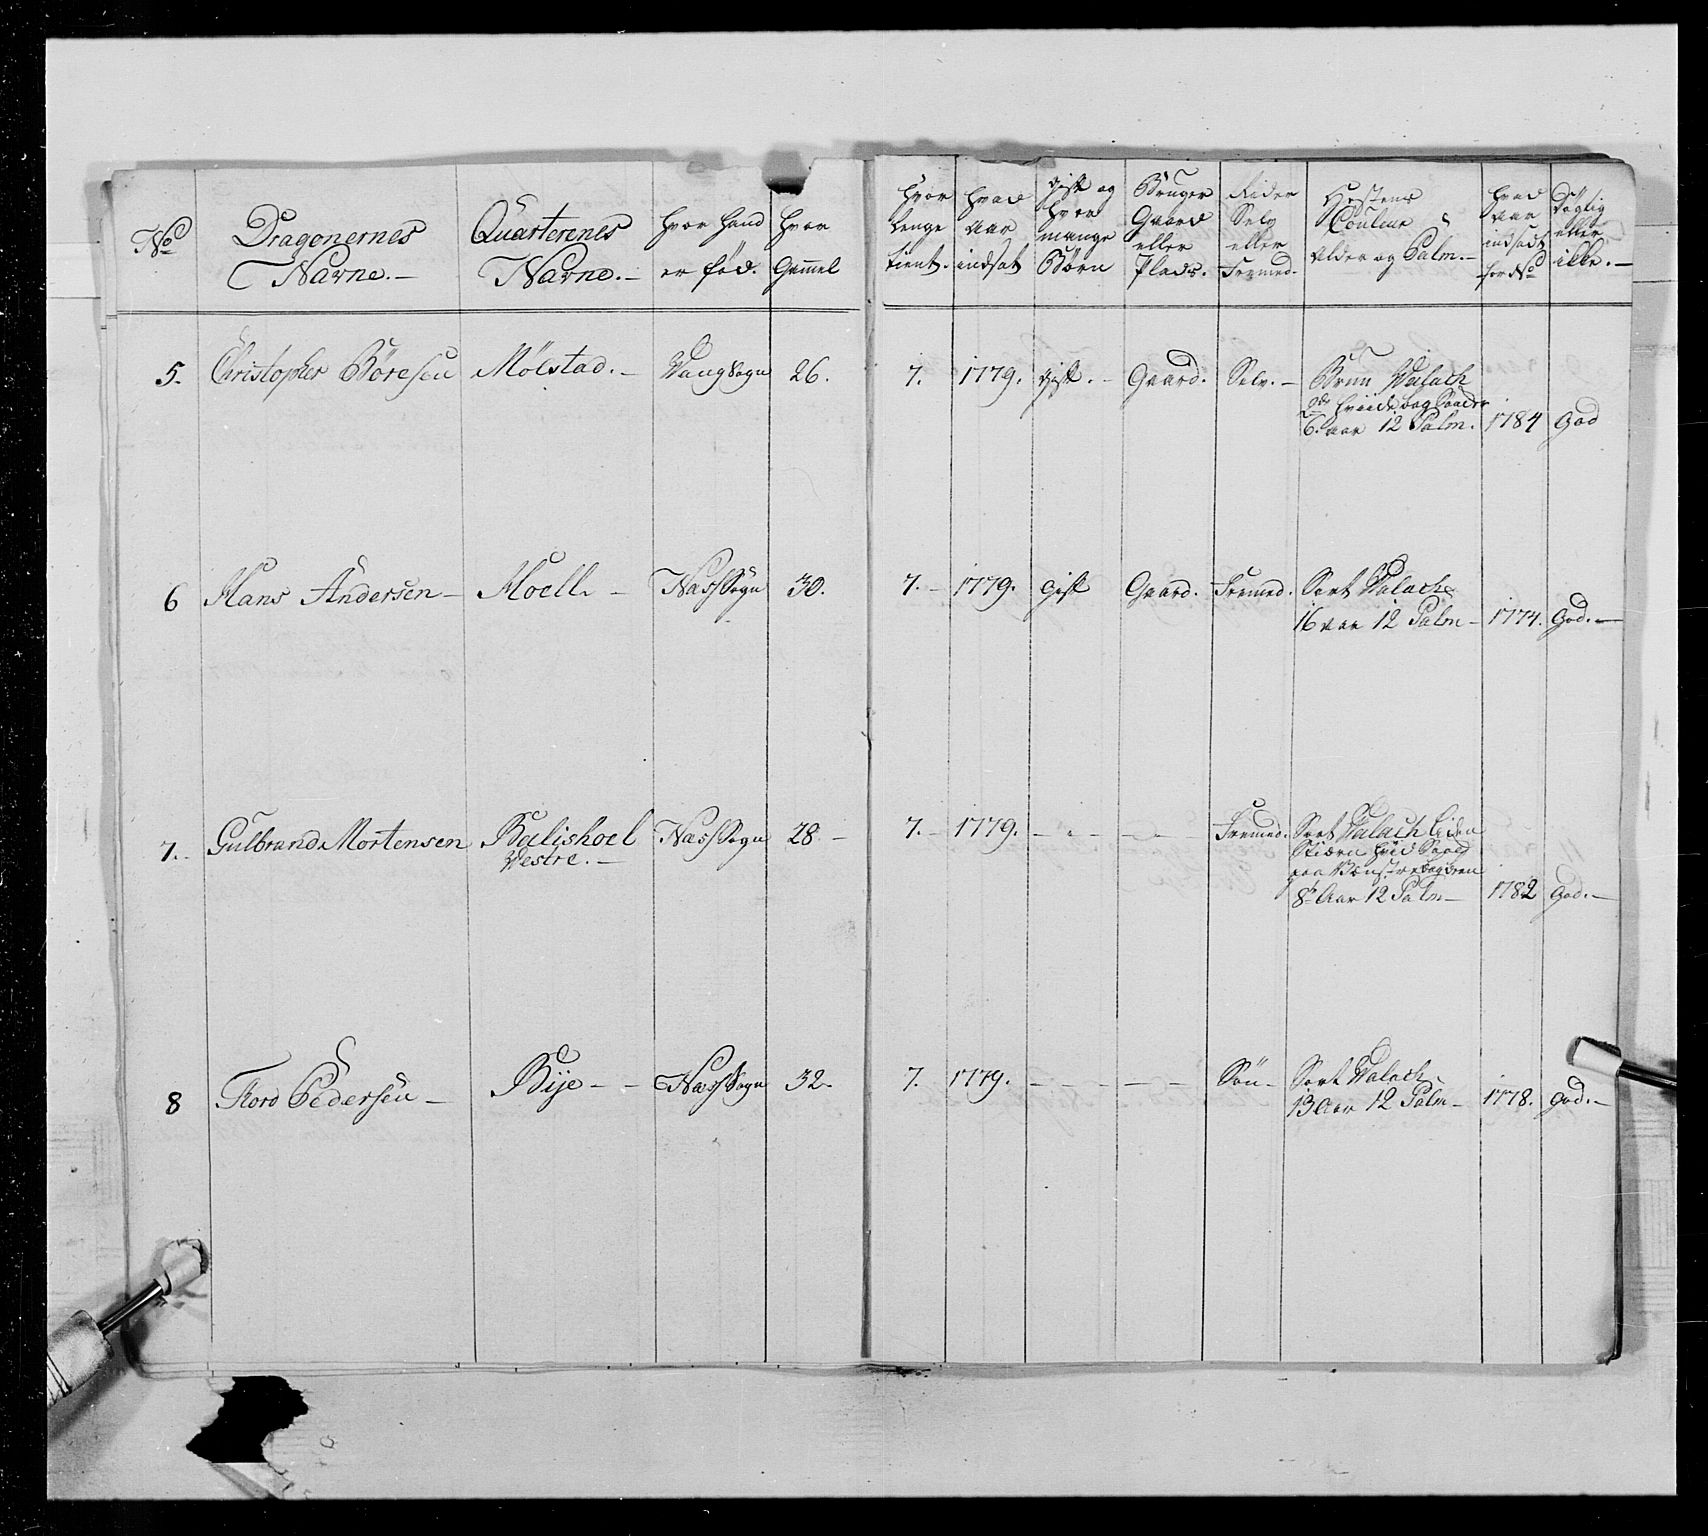 No
Dragonernes
Navne. -
Quarterenes
Navne. -
hvor hand
er fød.
hvor
Gammel
hvor
lenge
tient.
hvad
Aar
indsat
gift og
hvor
mange
Børn
Bruger
Gaard
eller
Plads.
Rider
Selv
eller
Fremed.
Hestens
Couleur
Alder og Palm. -
hvad
Aar
indsadt
for No
Dygtig
eller
ikke. -
5. Christopher Boresen Mølstad. - Vang Sogn 26. 7. 1779. gift. - Gaard. Selv. - Brun Valach
2de hviide bag Kaader
6. Aar 12 Palm. 1784 God
6 Hans Andersen - Moell. - Næss Sogn 30. 7. - 1779. gift Gaard. Fremed. Sort Valach
16 Aar 12 Palm - 1774. God. -
7. Gulbrand Mortensen Balishoel Næss Sogn 28 - 7. - 1779. - - - - - - Fremed. Sort Valach liden
Vestre. -
Stiærn hvid
paa Venstre bag been
8t Aar 12 Palm - 1782 God. -
8 Tord Pedersen - Bije - - Næss Sogn 32. 7. 1779. - - - - - - Søn - Sort Valach
13 Aar 12 Palm - 1778. God. -